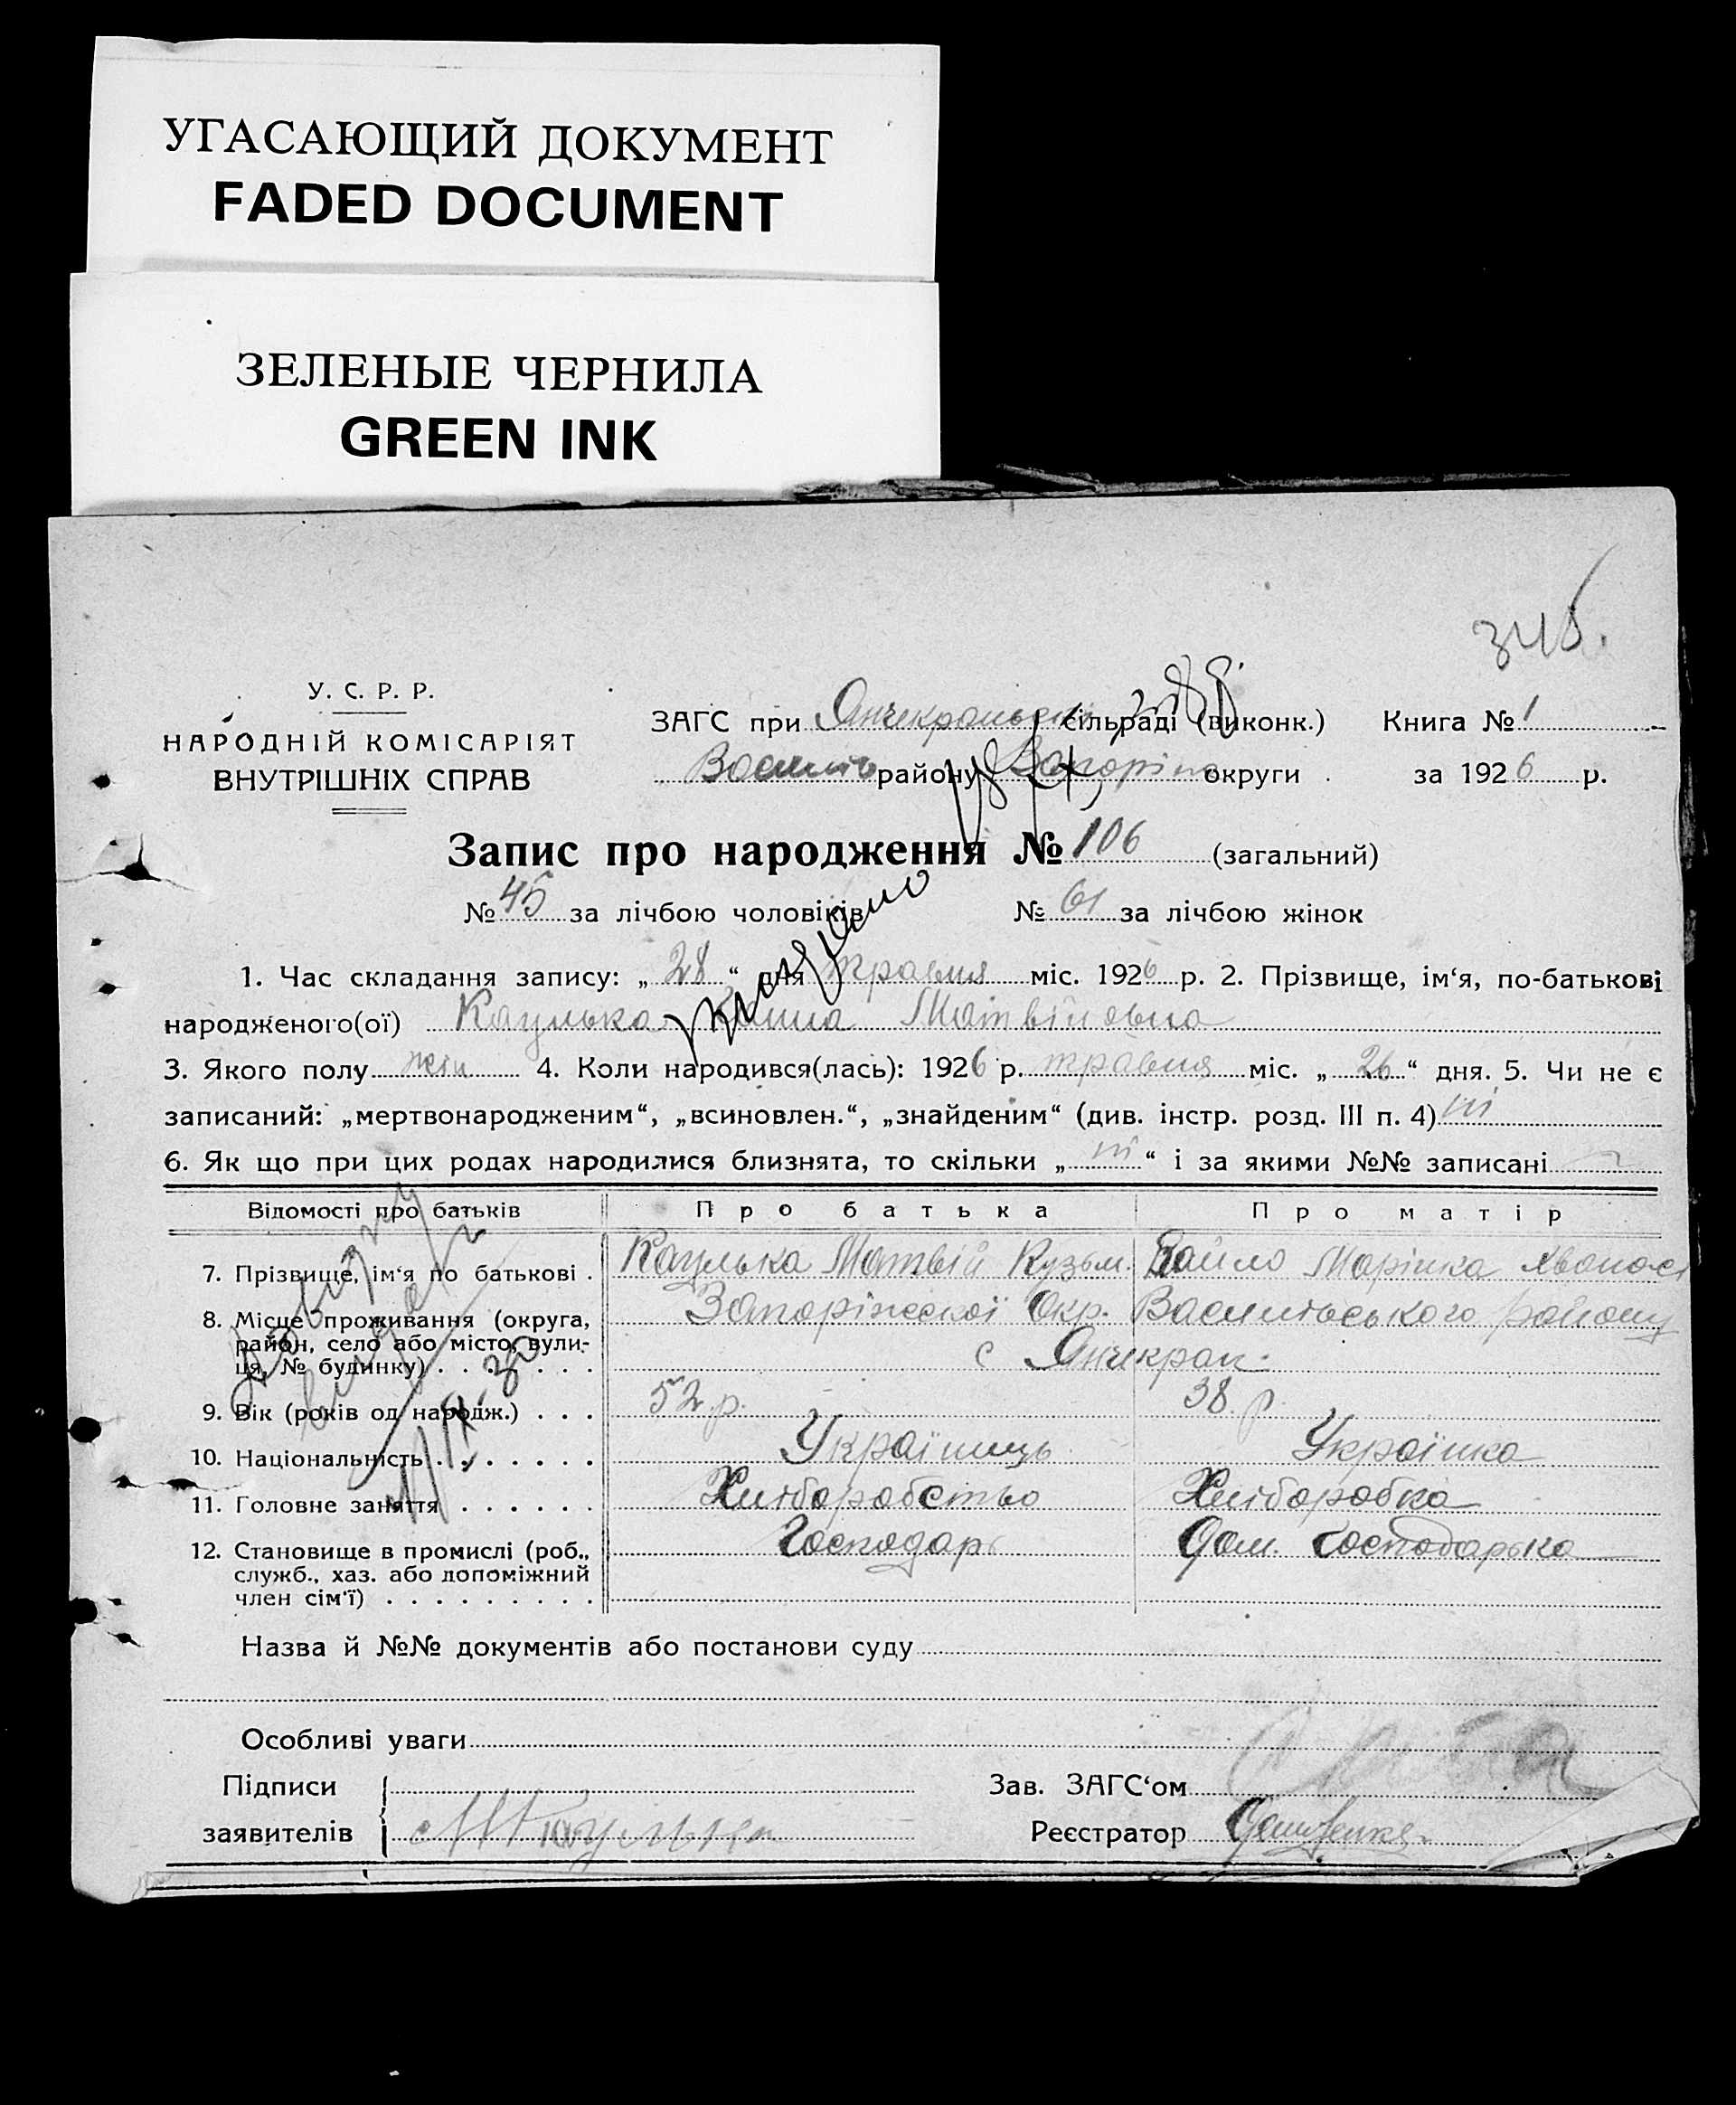 УГАСАЮЩИЙ ДОКУМЕНТ
FADED DOCUMENT
ЗЕЛЕНЫЕ ЧЕРНИЛА
GREEN INK
У. С. Р. Р.
НАРОДНІЙ КОМІСАРІЯТ
ВНУТРІШНІХ СПРАВ
ЗАГС при Янчекрацькій сільраді (виконк.) Книга № 1
району округи за 1926 р.
Запис про народження № 106 (загальний)
№ 45 за лічбою чоловіків № 61 за лічбою жінок
1. Час складання запису: „ 28 “ дня травня міс. 1926 р. 2. Прізвище, ім‘я, по-батькові
народженого(ої) Кацулька Матвіївна
3. Якого полу жін 4. Коли народився(лась): 1926 р. травня міс. „ 26 “ дня. 5. Чи не є
записаний: „мертвонародженим“, „всиновлен.“, „знайденим“ (див. інстр. розд. III п. 4) ні
6. Як що при цих родах народилися близнята, то скільки „ ні “ і за якими №№ записані
Відомості про батьків Про батька Про матір
7. Прізвище, ім‘я по батькові . Кацулька Матвій Кузьм. Марінка
8. Місце проживання (округа, Запоріжської Окр. Василівського району
район, село або місто, вули- с Янчекрак
ця, № будинку) . . . . . .
9. Вік (років од народж.) . . . 52 р. 38 р
10. Національність . . . . . . . Українець Українка
11. Головне заняття . . . . . . Хліборобство Хліборобка
12. Становище в промислі (роб., Господарь Дом. Господарька
служб., хаз. або допоміжний
член сім‘ї) . . . . . . . . .
Назва й №№ документів або постанови суду
Особливі уваги
Підписи Зав. ЗАГС‘ом
заявителів М Кацулька Реєстратор